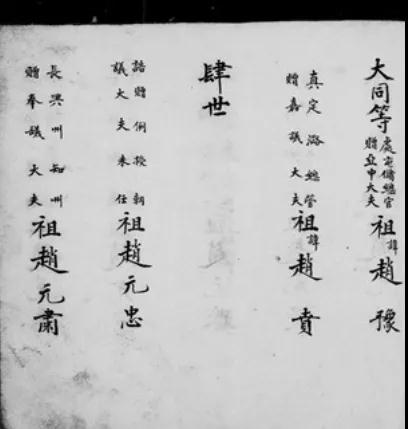 大同等處屯儲總官贈亞中大夫祖諱趙豫
真定潞總管贈嘉議大夫祖諱趙賁
肆世
誥贈俐授朝議大夫未仕祖趙元忠
長興州知州贈奉議大夫祖趙元肅